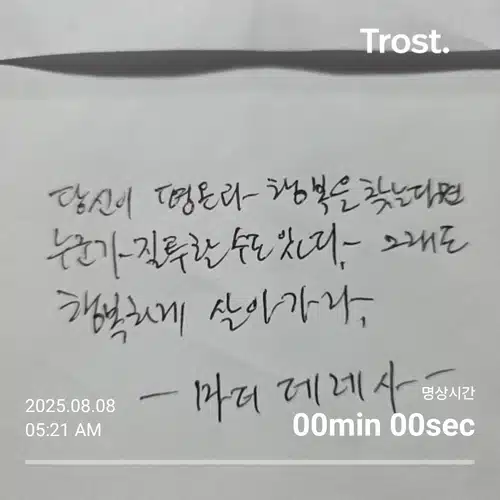 Trost.
당신이 평온과 행복을 찾는다면
누군가 질투할 수도 있다, 그래도
행복하게 살아가라,
- 마더 테레사 -
명상시간
2025.08.08
00min 00sec
05:21 AM